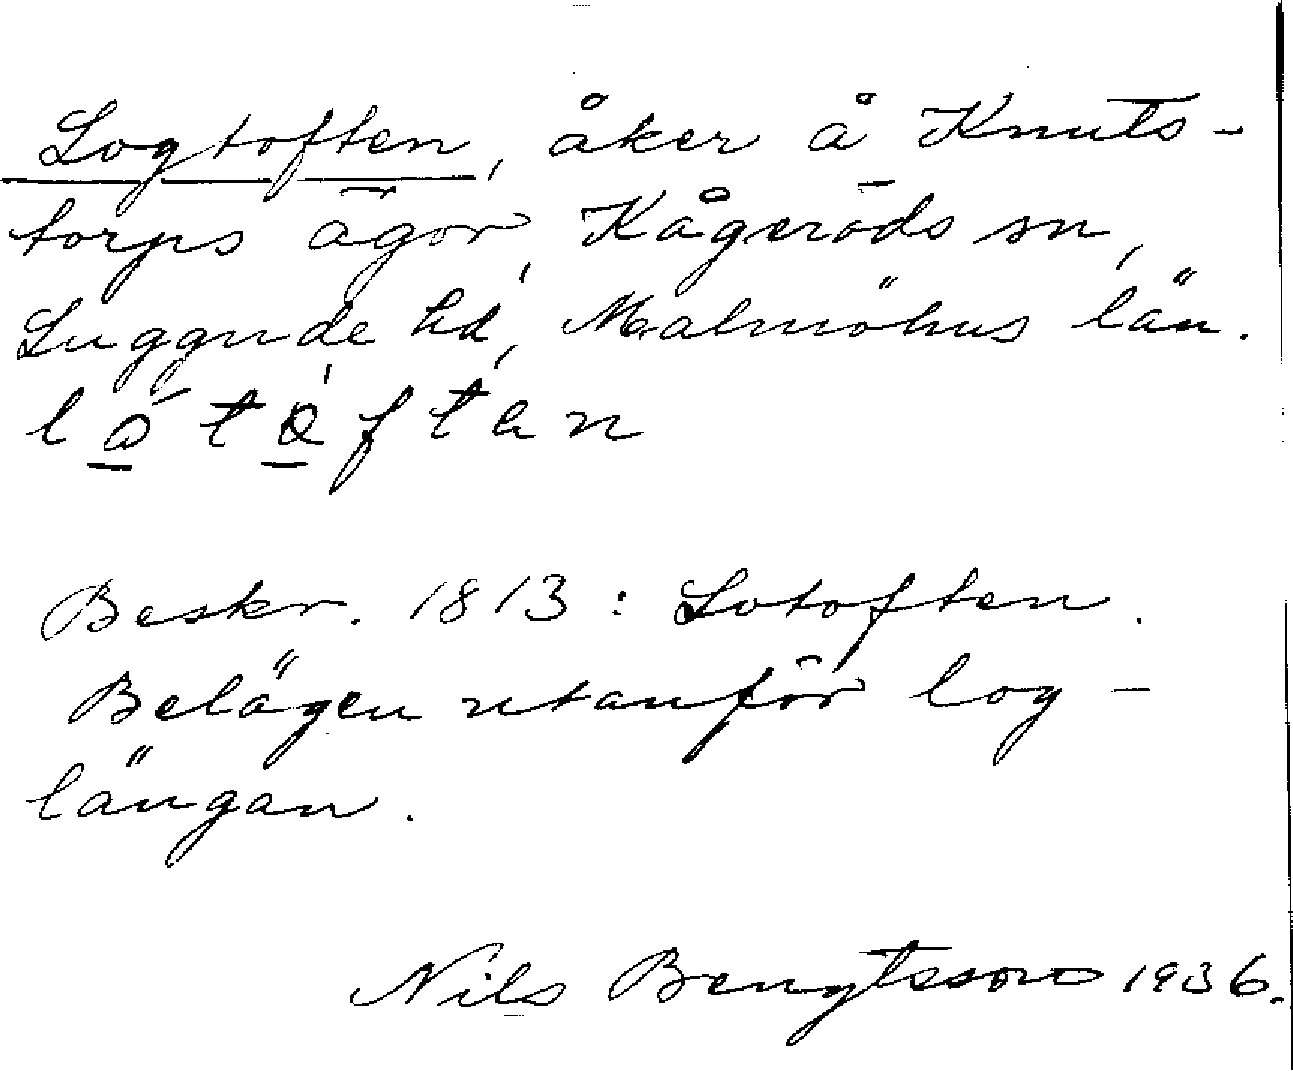 Logtoften, åker å Knuts-
torps ägor, Kågeröds sn,
Luggude hd, Malmöhus län.
Beskr. 1813 : Lotoften.
Belägen utanför log-
längan.
Nils Bengtsson 1936.